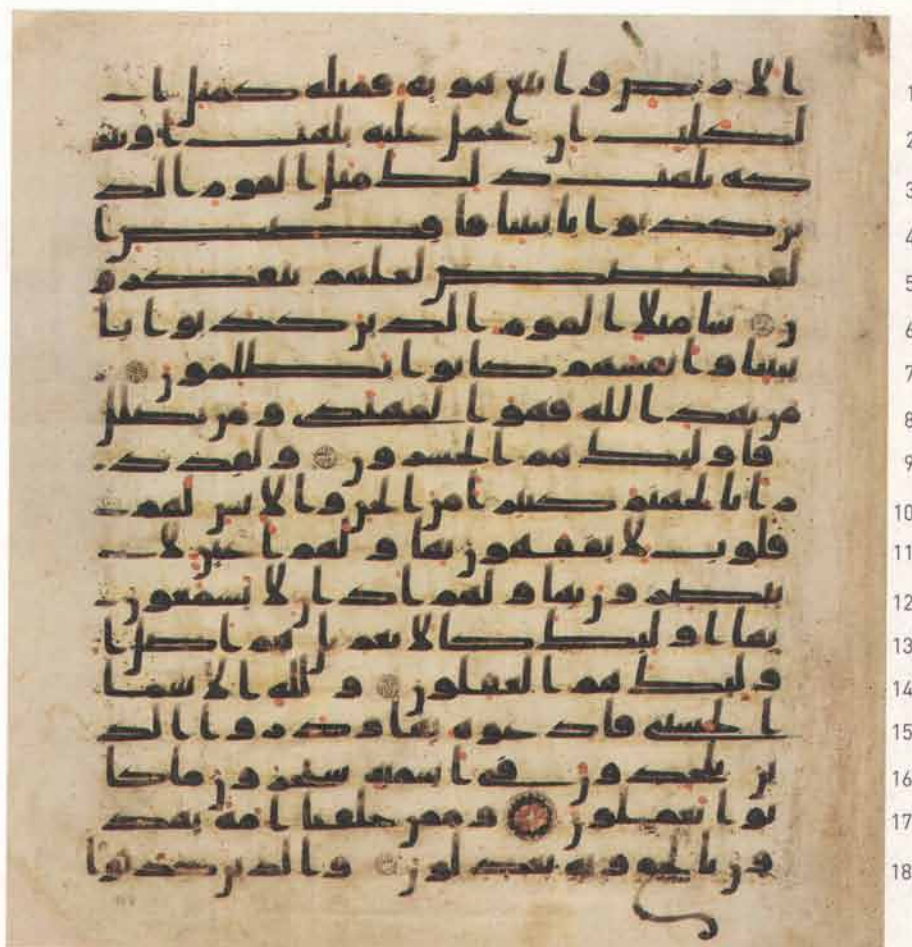 الارض واتبع هويه فمثله كمثل ا 1
لكلب ان تحمل عليه يلهث او تتر 2
كه يلهث ذلك مثل القوم الذ 3
ين كذبوا بايتنا فاقصص ا 4
لقصص لعلهم يتفكرو 5
ن سا مثلا القوم الذين كذبوا با 6
يتنا وانفسهم كانوا يظلمون 7
من يهد الله فهو المهتدي ومن يضلل 8
فاوليك هم الخسرون ولقد ذر 9
انا لجهنم كثيرا من الجن والانس لهم 10
قلوب لا يفقهون بها ولهم اعين لا 11
يبصرون بها ولهم اذان لا يسمعون 12
بها اوليك كالانعم بل هم اضل ا 13
وليك هم الغفلون ولله الاسما 14
الحسنى فادعوه بها وذروا الذ 15
ين يلحدون في اسميه سيجزون ما كا 16
نوا يعملون وممن خلقنا امة يهد 17
ون بالحق وبه يعدلون والذين كذبوا 18